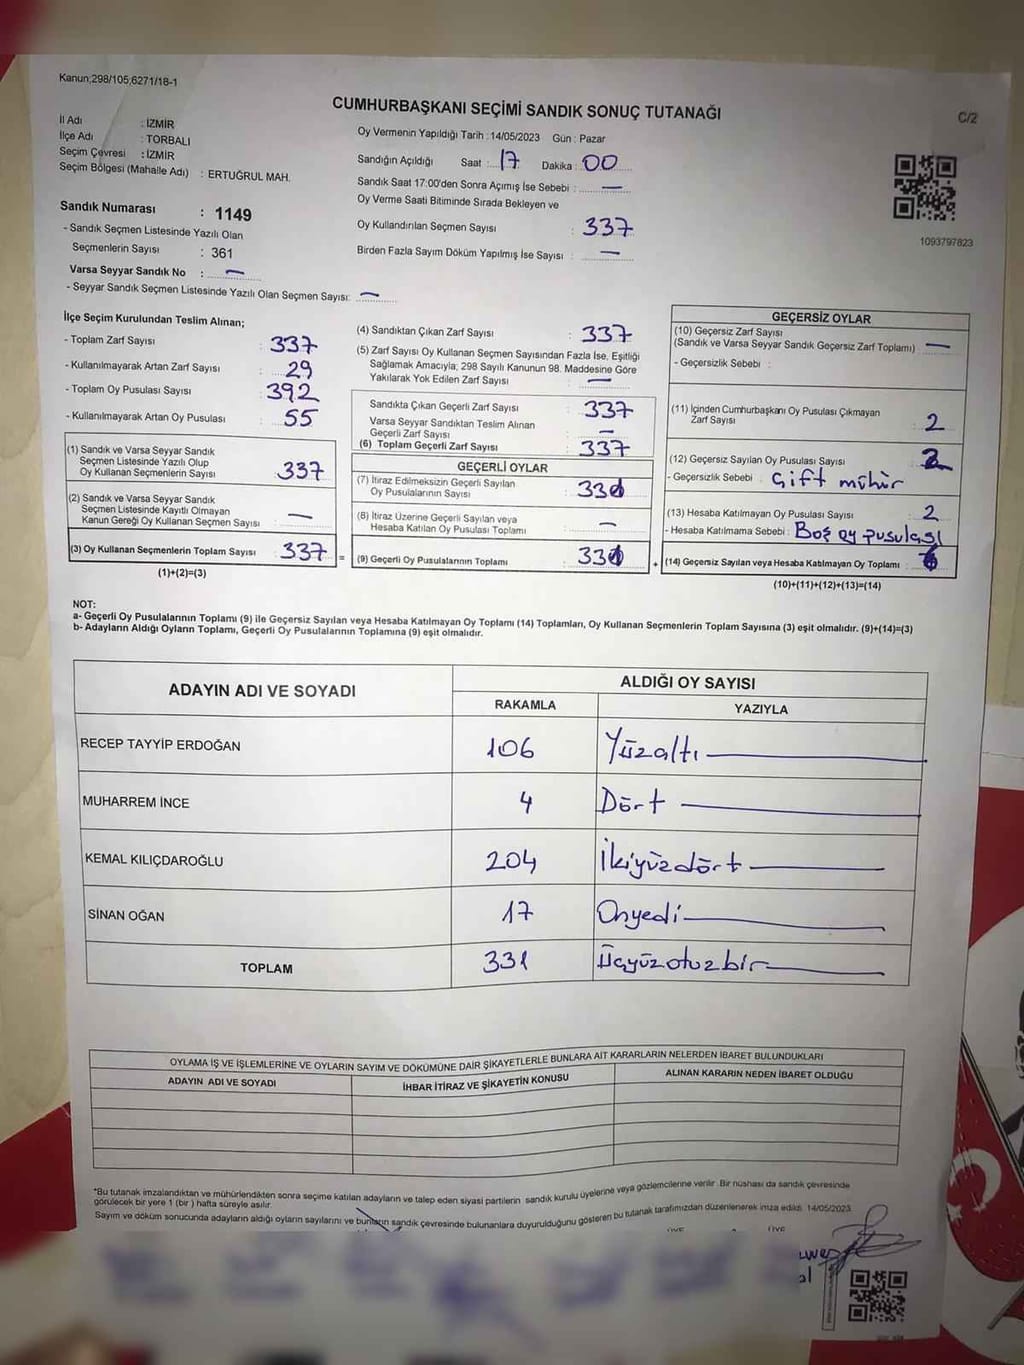 Kanun;298/105,6271/18-1
CUMHURBAŞKANI SEÇİMİ SANDIK SONUÇ TUTANAĞI
C/2
İl Adı : İZMİR
İlçe Adı : TORBALI
Seçim Çevresi : İZMİR
Seçim Bölgesi (Mahalle Adı) : ERTUĞRUL MAH.
Oy Vermenin Yapıldığı Tarih : 14/05/2023 Gün : Pazar
Sandığın Açıldığı Saat : 17 Dakika : 00
Sandık Saat 17:00'den Sonra Açımış İse Sebebi : —
Oy Verme Saati Bitiminde Sırada Bekleyen ve
Oy Kullandırılan Seçmen Sayısı : 337
Birden Fazla Sayım Döküm Yapılmış İse Sayısı : —
1093797823
Sandık Numarası : 1149
- Sandık Seçmen Listesinde Yazılı Olan
Seçmenlerin Sayısı : 361
Varsa Seyyar Sandık No : —
- Seyyar Sandık Seçmen Listesinde Yazılı Olan Seçmen Sayısı: —
İlçe Seçim Kurulundan Teslim Alınan;
- Toplam Zarf Sayısı : 337
- Kullanılmayarak Artan Zarf Sayısı : 29
- Toplam Oy Pusulası Sayısı : 392
- Kullanılmayarak Artan Oy Pusulası : 55
(1) Sandık ve Varsa Seyyar Sandık
Seçmen Listesinde Yazılı Olup
Oy Kullanan Seçmenlerin Sayısı : 337
(2) Sandık ve Varsa Seyyar Sandık
Seçmen Listesinde Kayıtlı Olmayan
Kanun Gereği Oy Kullanan Seçmen Sayısı : —
(3) Oy Kullanan Seçmenlerin Toplam Sayısı : 337
(1)+(2)=(3)
(4) Sandıktan Çıkan Zarf Sayısı : 337
(5) Zarf Sayısı Oy Kullanan Seçmen Sayısından Fazla İse, Eşitliği
Sağlamak Amacıyla; 298 Sayılı Kanunun 98. Maddesine Göre
Yakılarak Yok Edilen Zarf Sayısı : —
Sandıkta Çıkan Geçerli Zarf Sayısı : 337
Varsa Seyyar Sandıktan Teslim Alınan
Geçerli Zarf Sayısı : —
(6) Toplam Geçerli Zarf Sayısı : 337
GEÇERLİ OYLAR
(7) İtiraz Edilmeksizin Geçerli Sayılan
Oy Pusulalarının Sayısı : 331
(8) İtiraz Üzerine Geçerli Sayılan veya
Hesaba Katılan Oy Pusulası Toplamı : —
= (9) Geçerli Oy Pusulalarının Toplamı : 331
GEÇERSİZ OYLAR
(10) Geçersiz Zarf Sayısı
(Sandık ve Varsa Seyyar Sandık Geçersiz Zarf Toplamı) : —
- Geçersizlik Sebebi :
(11) İçinden Cumhurbaşkanı Oy Pusulası Çıkmayan
Zarf Sayısı : 2
(12) Geçersiz Sayılan Oy Pusulası Sayısı : 2
- Geçersizlik Sebebi : Çift mühür
(13) Hesaba Katılmayan Oy Pusulası Sayısı : 2
- Hesaba Katılmama Sebebi : Boş oy pusulası
+ (14) Geçersiz Sayılan veya Hesaba Katılmayan Oy Toplamı : 6
(10)+(11)+(12)+(13)=(14)
NOT:
a- Geçerli Oy Pusulalarının Toplamı (9) ile Geçersiz Sayılan veya Hesaba Katılmayan Oy Toplamı (14) Toplamları, Oy Kullanan Seçmenlerin Toplam Sayısına (3) eşit olmalıdır. (9)+(14)=(3)
b- Adayların Aldığı Oyların Toplamı, Geçerli Oy Pusulalarının Toplamına (9) eşit olmalıdır.
ADAYIN ADI VE SOYADI
ALDIĞI OY SAYISI
RAKAMLA YAZIYLA
RECEP TAYYİP ERDOĞAN 106 Yüzaltı
MUHARREM İNCE 4 Dört
KEMAL KILIÇDAROĞLU 204 İkiyüzdört
SİNAN OĞAN 17 Onyedi
TOPLAM 331 Üçyüzotuzbir
OYLAMA İŞ VE İŞLEMLERİNE VE OYLARIN SAYIM VE DÖKÜMÜNE DAİR ŞİKAYETLERLE BUNLARA AİT KARARLARIN NELERDEN İBARET BULUNDUKLARI
ADAYIN ADI VE SOYADI İHBAR İTİRAZ VE ŞİKAYETİN KONUSU ALINAN KARARIN NEDEN İBARET OLDUĞU
*Bu tutanak imzalandıktan ve mühürlendikten sonra seçime katılan adayların ve talep eden siyasi partilerin sandık kurulu üyelerine veya gözlemcilerine verilir. Bir nüshası da sandık çevresinde
görülecek bir yere 1 (bir ) hafta süreyle asılır.
Sayım ve döküm sonucunda adayların aldığı oyların sayılarını ve bunların sandık çevresinde bulunanlara duyurulduğunu gösteren bu tutanak tarafımızdan düzenlenerek imza edildi. 14/05/2023
ÜYE ÜYE